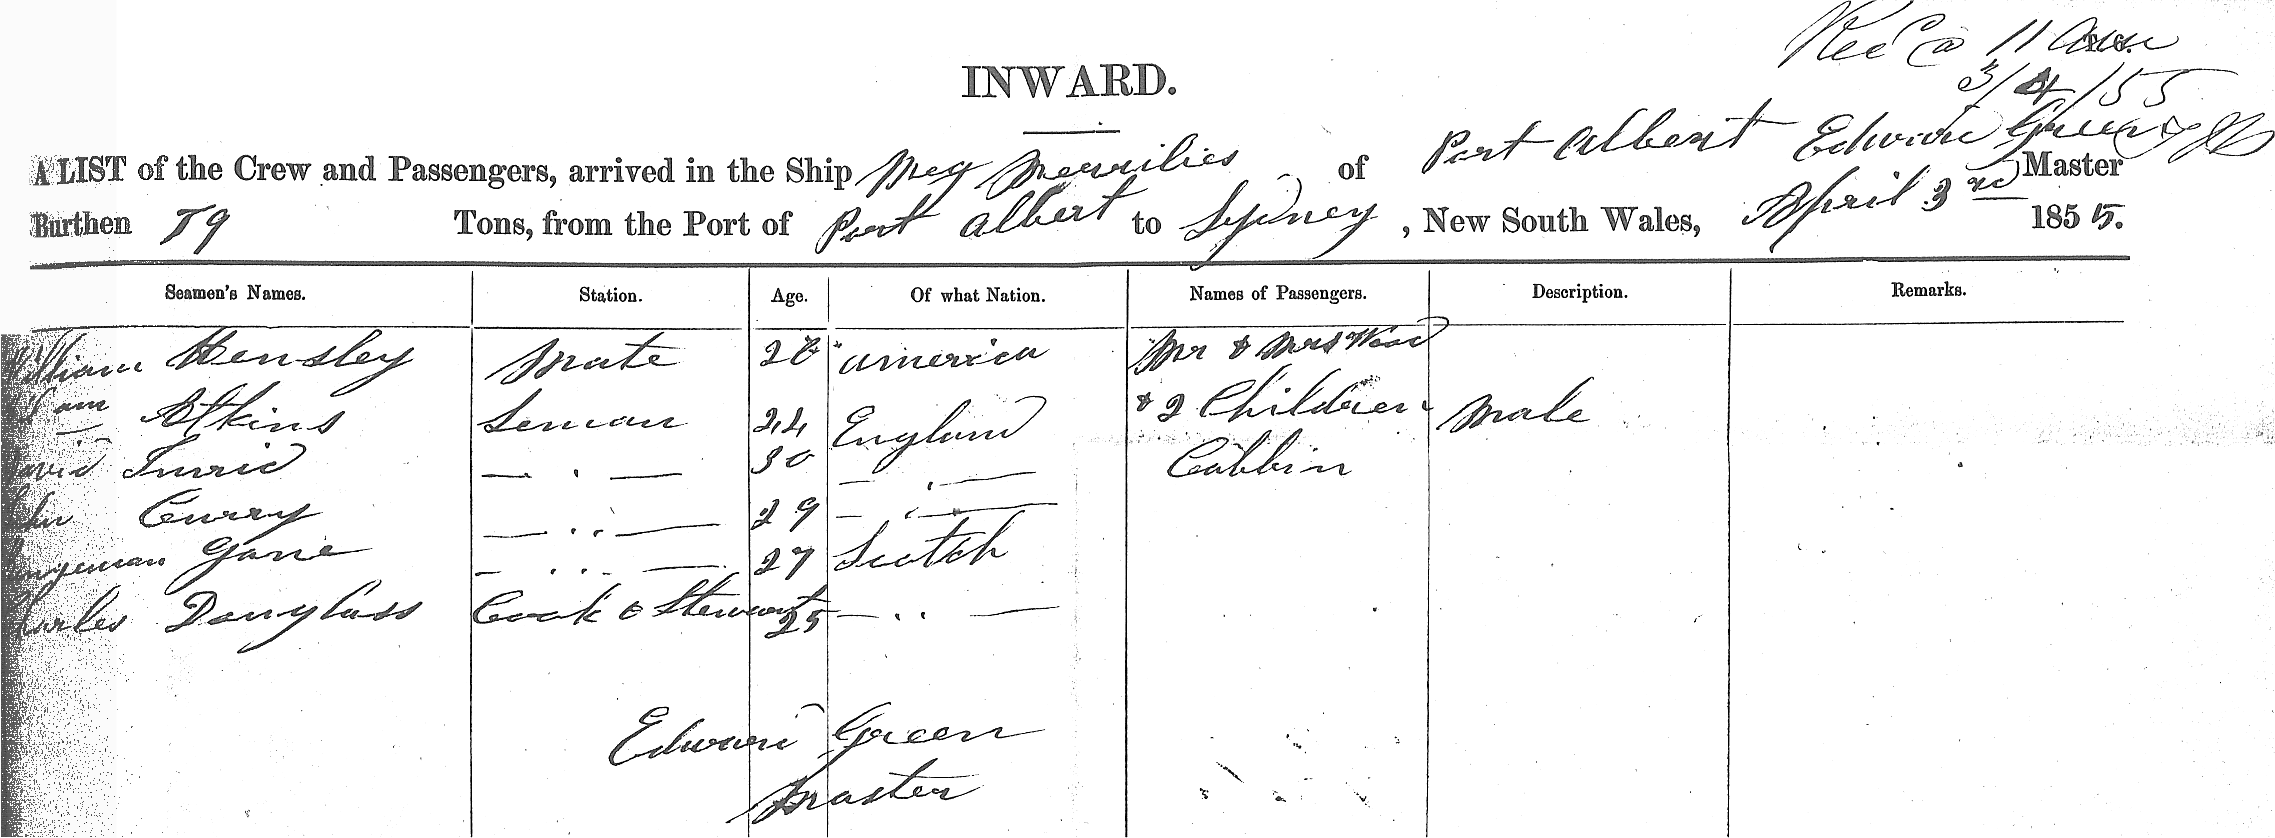 Rec'd @ 11 a.m.
3/4/55
INWARD.
A LIST of the Crew and Passengers, arrived in the Ship Meg Merrilies of Port Albert Edward Green Master
Burthen 79 Tons, from the Port of Port Albert to Sydney, New South Wales, April 3rd 1855.
Seamen's Names. Station. Age. Of what Nation. Names of Passengers. Description. Remarks.
William Hensley Mate 28 America Mr & Mrs Wood
Atkins Seman 24 England & 2 Children Male
David 30 — " — Cabbin
John Curry — " — 29 — " —
Garie — " — 27 Scotch
Charles Douglass Cook & Stewart 25 — " —
Edward Green
Master